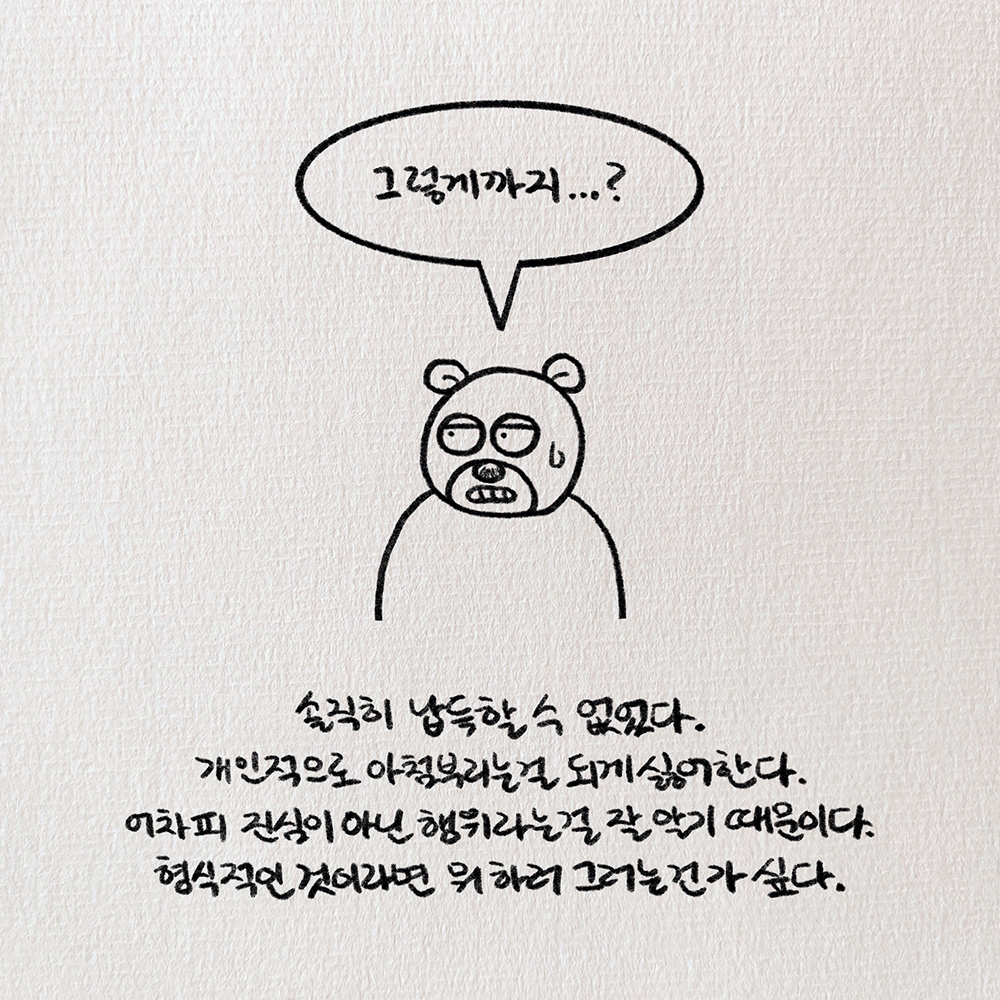 그렇게까지...?
솔직히 납득할 수 없었다.
개인적으로 아첨부리는걸 되게 싫어한다.
어차피 진심이 아닌 행위라는걸 잘 알기 때문이다.
형식적인 것이라면 뭐하러 그러는건가 싶다.